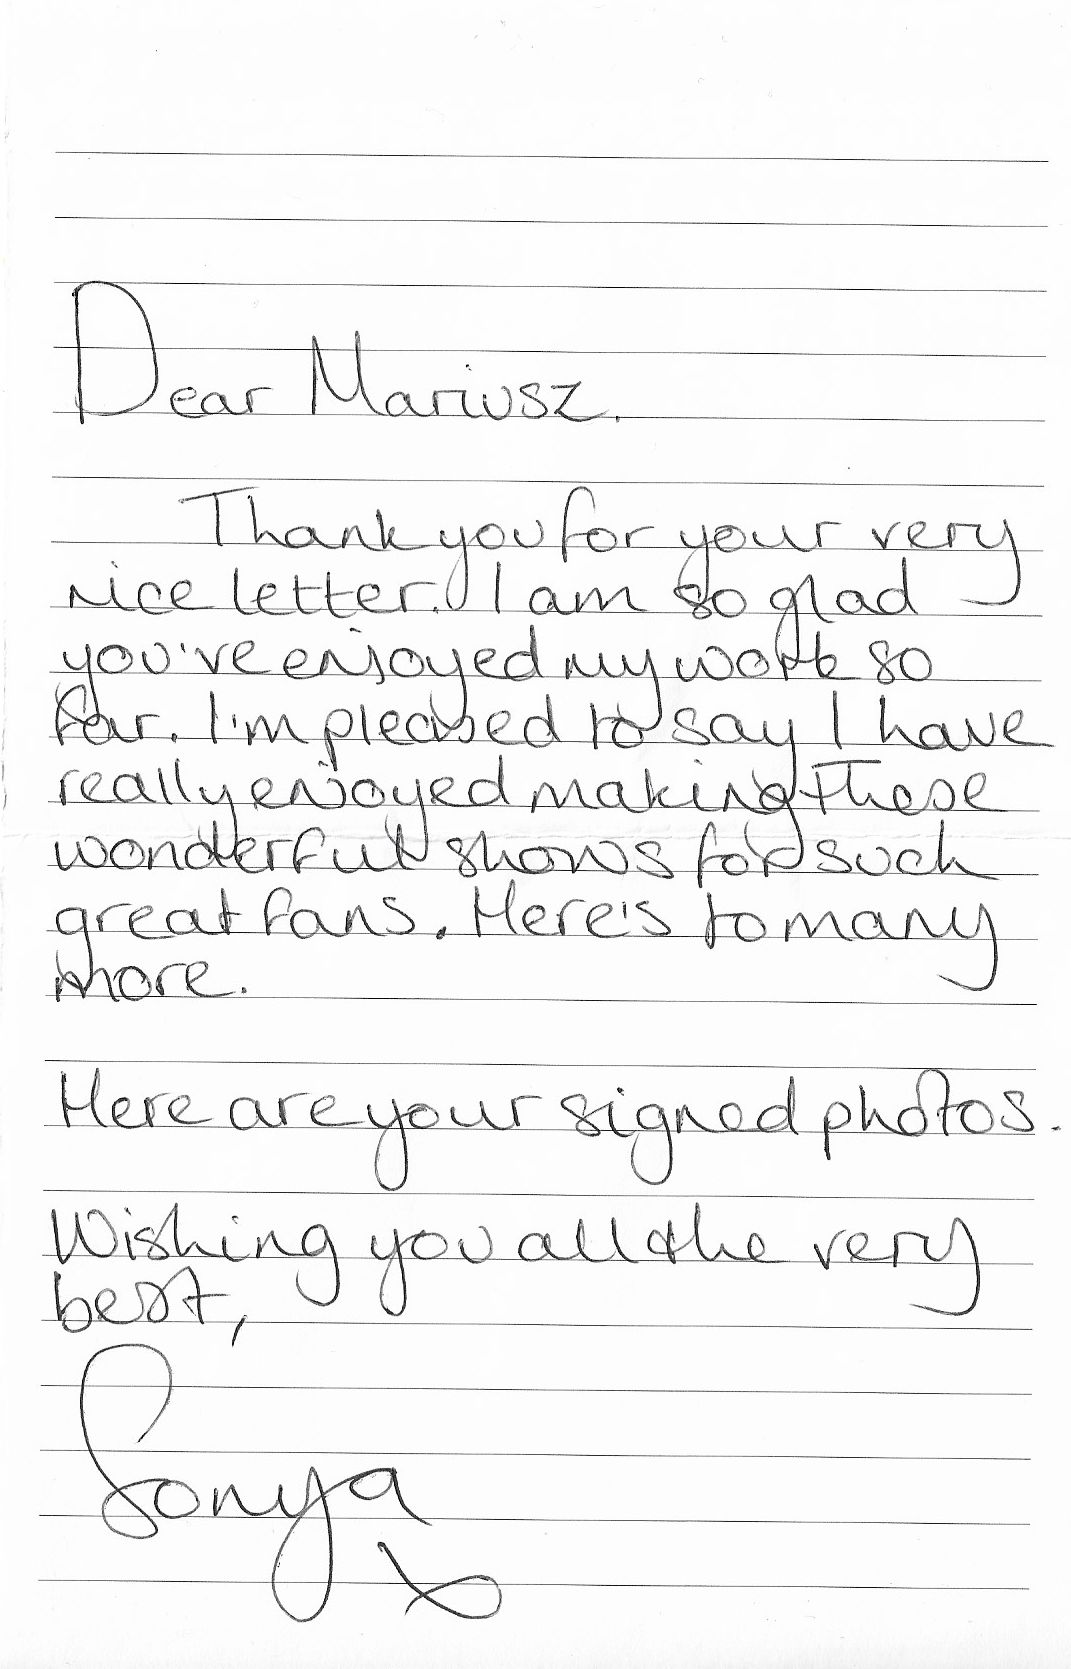 Dear Mariusz.
Thank you for your very
nice letter. I am so glad
you've enjoyed my work so
far. I'm pleased to say I have
really enjoyed making these
wonderful shows for such
great fans. Here's to many
more.
Here are your signed photos.
Wishing you all the very
best,
Sonya
x